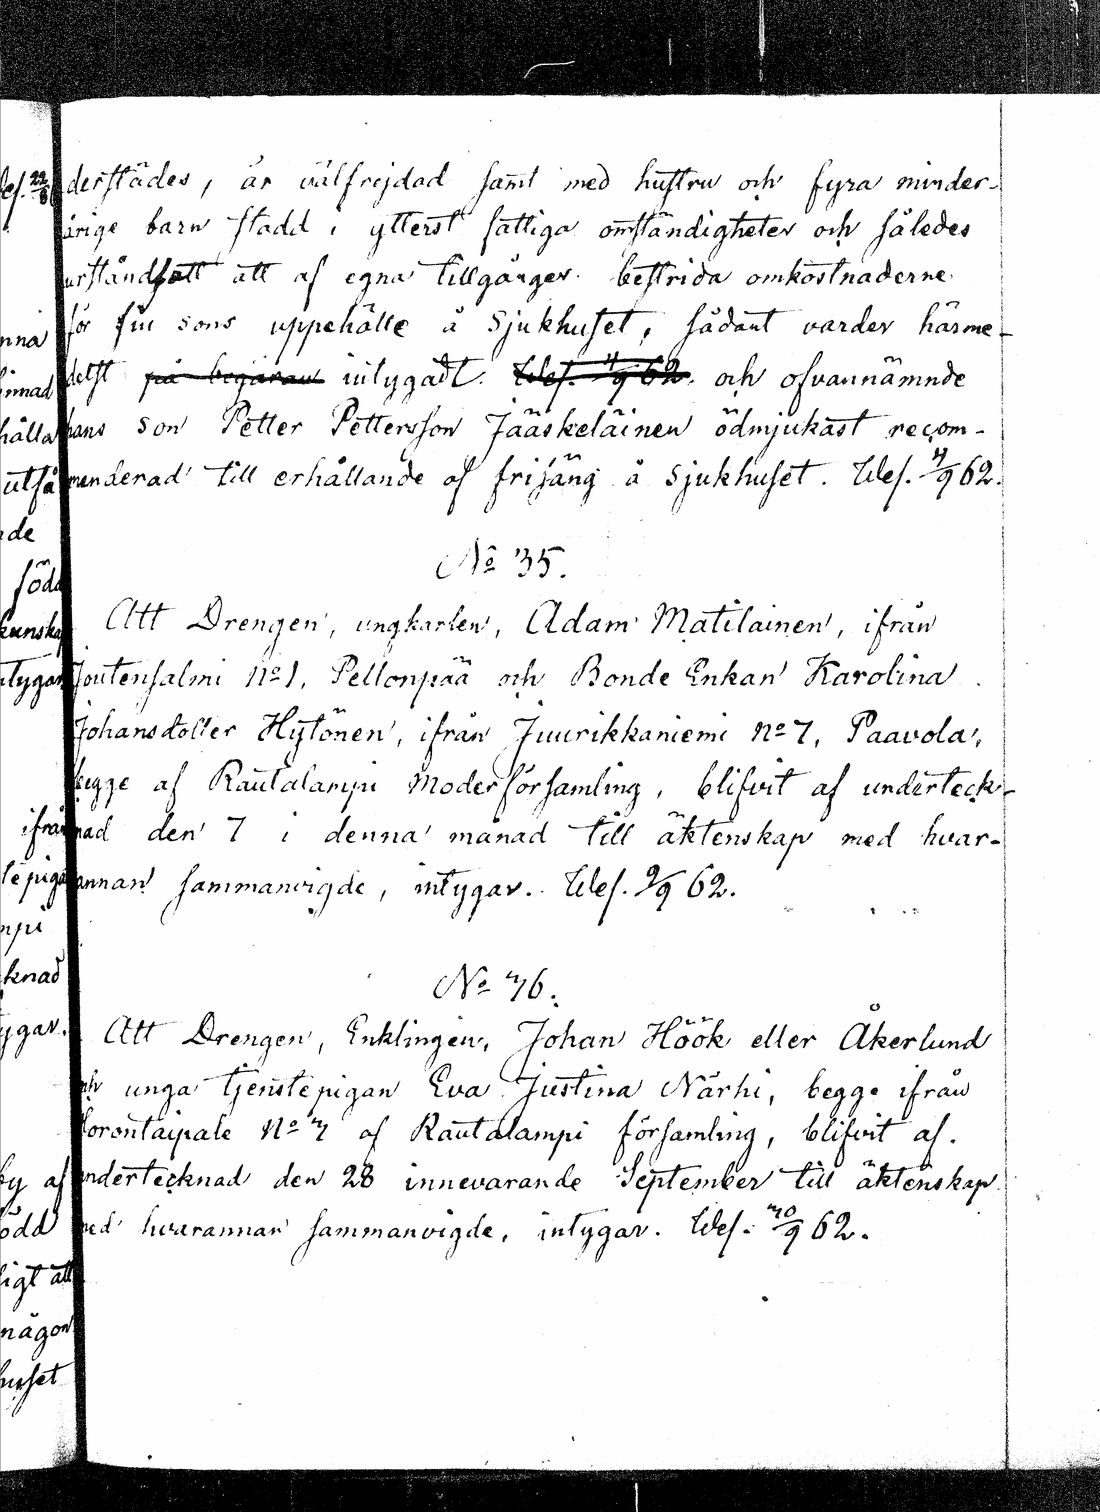 derstädes, är välfrejdad samt med hustru och fyra minder-
årige barn stadd i ytterst fattiga omständigheter och således
urståndsatt att af egna tillgångar bestrida omkostnaderne
för sin sons uppehälle å Sjukhuset, sådant varder härme-
delst på begäran intygadt. Wes. 62. och ofvannämnde
hans son Petter Pettersson Jääskeläinen ödmjukast recom-
menderad till erhållande af frisäng å Sjukhuset. Wes. 4/9 62.
No 35.
Att Drengen, ungkarlen, Adam Matilainen, ifrån
Joutensalmi No 1, Pellonpää och Bonde Enkan Karolina
Johansdotter Hytönen, ifrån Juurikkaniemi No 7, Paavola,
begge af Rautalampi Moderförsamling, blifvit af underteck-
nad den 7 i denna månad till äktenskap med hvar-
annan sammanvigde, intygar. Wes. 9/9 62.
No 36.
Att Drengen, Enklingen, Johan Höök eller Åkerlund
och unga tjenstepigan Eva Justina Närhi, begge ifrån
Korontaipale No 3 af Rautalampi församling, blifvit af
undertecknad den 28 innevarande September till äktenskap
med hvarannan sammanvigde, intygar. Wes. 30/9 62.